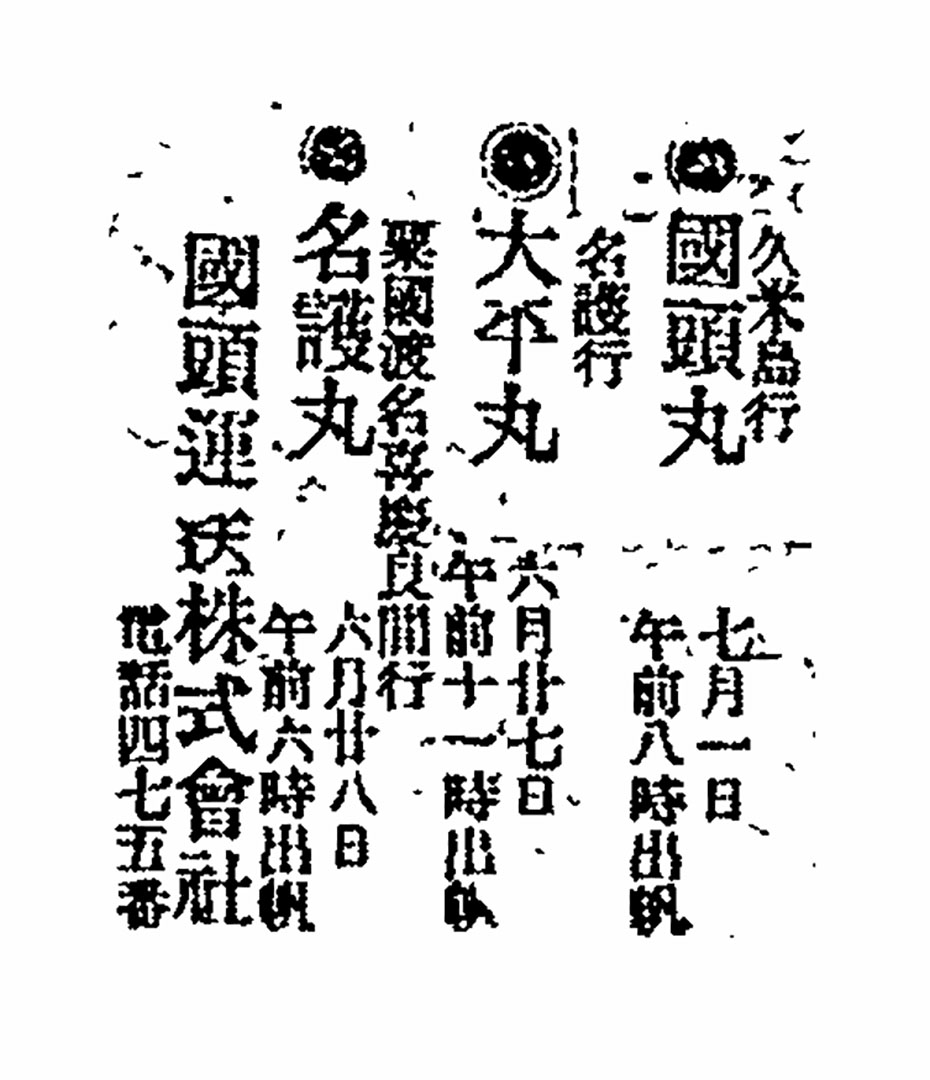 久米島行
國頭丸
七月一日
午前八時出帆
名護行
大平丸
六月廿七日
午前十一時出帆
粟國渡名喜慶良間行
名護丸
六月廿八日
午前六時出帆
國頭運送株式會社
電話四七五番